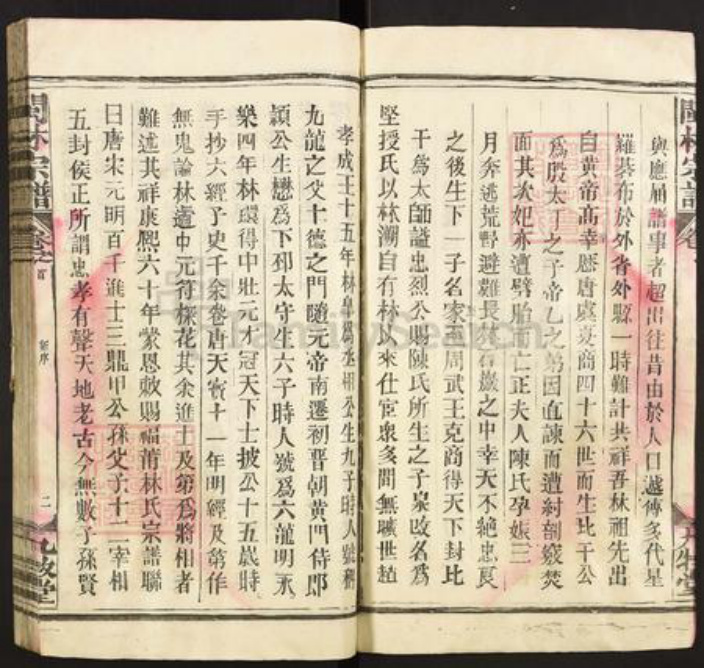 與應届譜事者超出往昔由於人口遞傳多代星
羅碁布於外省外縣一時難計共祥吾林祖先出
自黄帝髙辛歷唐虞夏商四十六世而生比干公
爲殷太丁之子帝乙之弟因直諫而遭紂剖竅焚
面其次妃亦遭劈胎而亡正夫人陳氏孕娠三
月奔逃荒野避難長林石巖之中幸天不絶忠良
之後生下一子名家至周武王克商得天下封比
干爲太師諡忠烈公賜陳氏所生之子泉改名爲
堅授氏以林溯自有林以來仕宦衆多間無曠世趙
孝成王十五年林皐爲丞相公生九子時人號稱
九龍之父十德之門隨元帝南遷初晋朝黄門侍郎
穎公生懋爲下邳太守生六子時人號爲六龍明永
樂四年林環得中壯元才冠天下士披公十五歲時
手抄六經子史千余卷唐天寳十一年明經及第作
無鬼論林遺中元符探花其余進士及第爲將相者
難述其祥康熙六十年蒙恩敕賜福莆林氏宗譜聯
曰唐宋元明百千進士三鼎甲公孫父子十二宰相
五封侯正所謂忠孝有聲天地老古今無數子孫賢
閩林宗譜
卷之首
新序
二
九牧堂